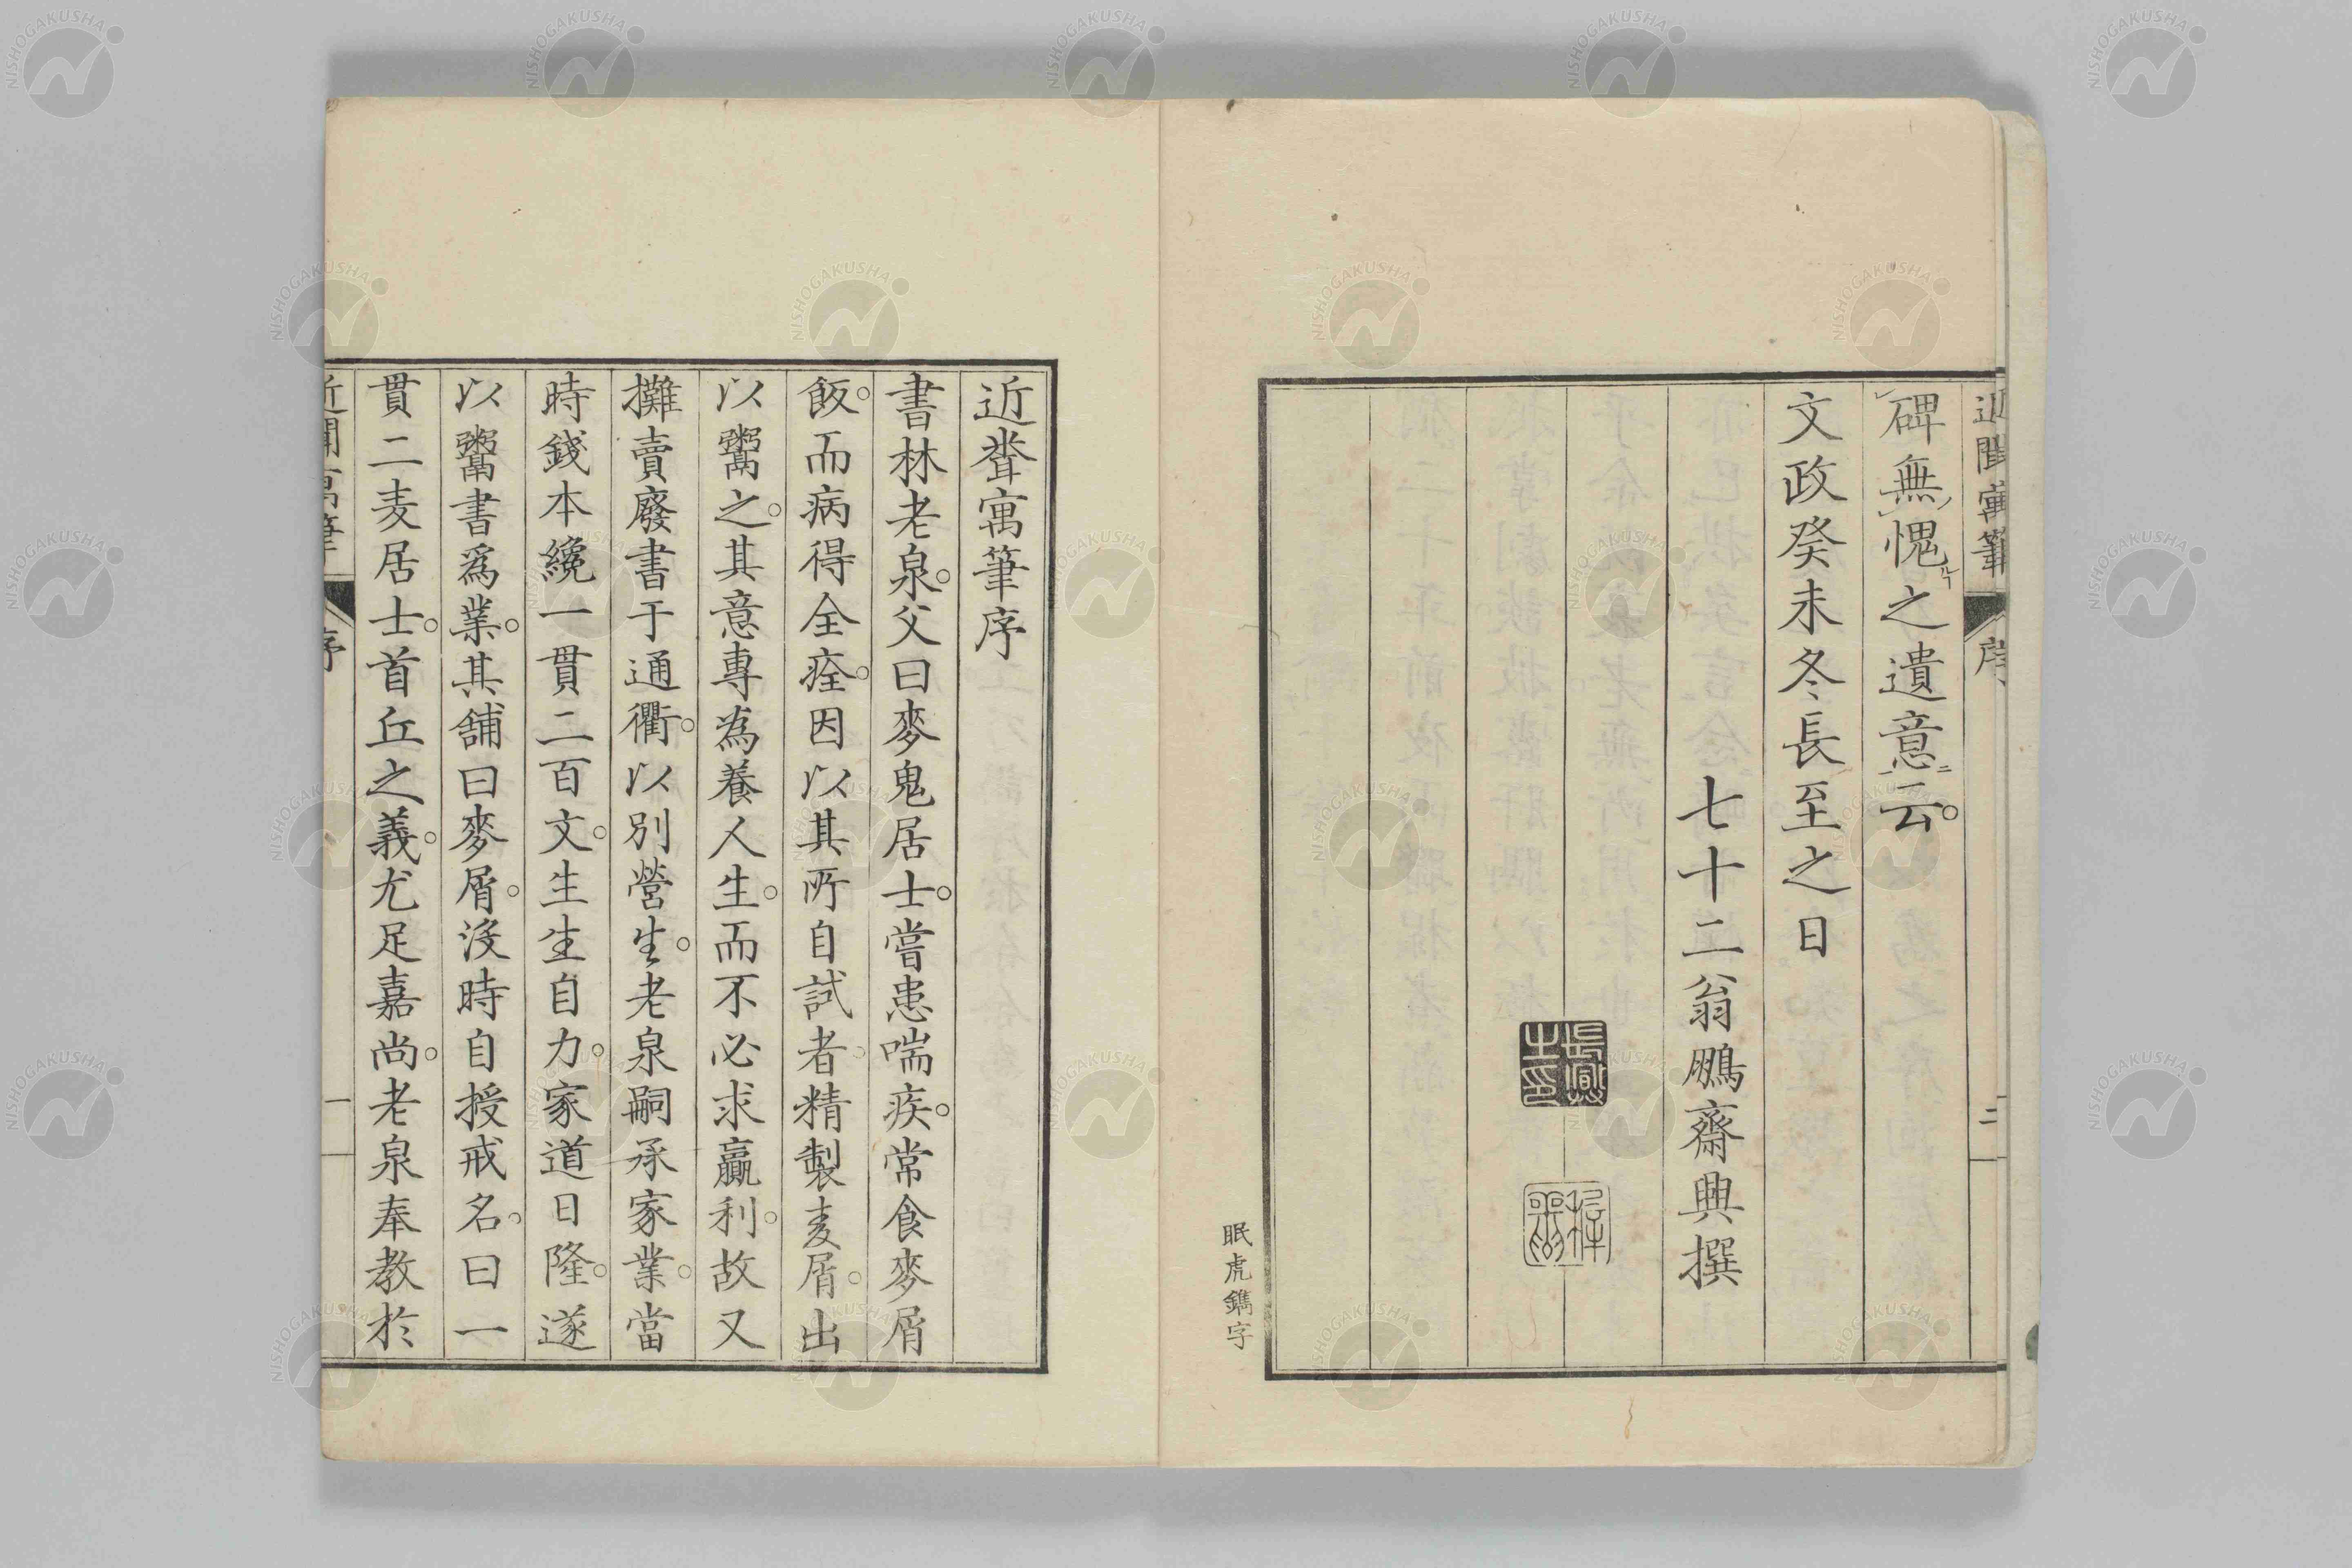 近聞寓筆
序
二
碑無愧之遺意云。
文政癸未冬長至之日
七十二翁鵬齋興撰
長興之印
眠虎鐫字
近聞寓筆序
書林老泉。父曰麥鬼居士。嘗患喘疾。常食麥屑
飯。而病得全痊。因以其所自試者。精製麦屑。出
以鬻之。其意專為養人生。而不必求贏利。故又
攤賣廢書于通衢。以別營生。老泉嗣承家業。當
時錢本纔一貫二百文。生生自力。家道日隆。遂
以鬻書爲業。其舖曰麥屑。沒時自授戒名。曰一
貫二麦居士。首丘之義。尤足嘉尚。老泉奉教於
近聞寓筆
序
一
NISHOGAKUSHA